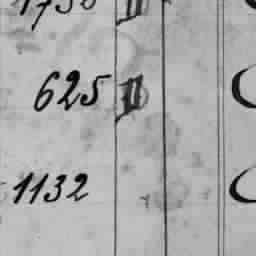 625 II
1132